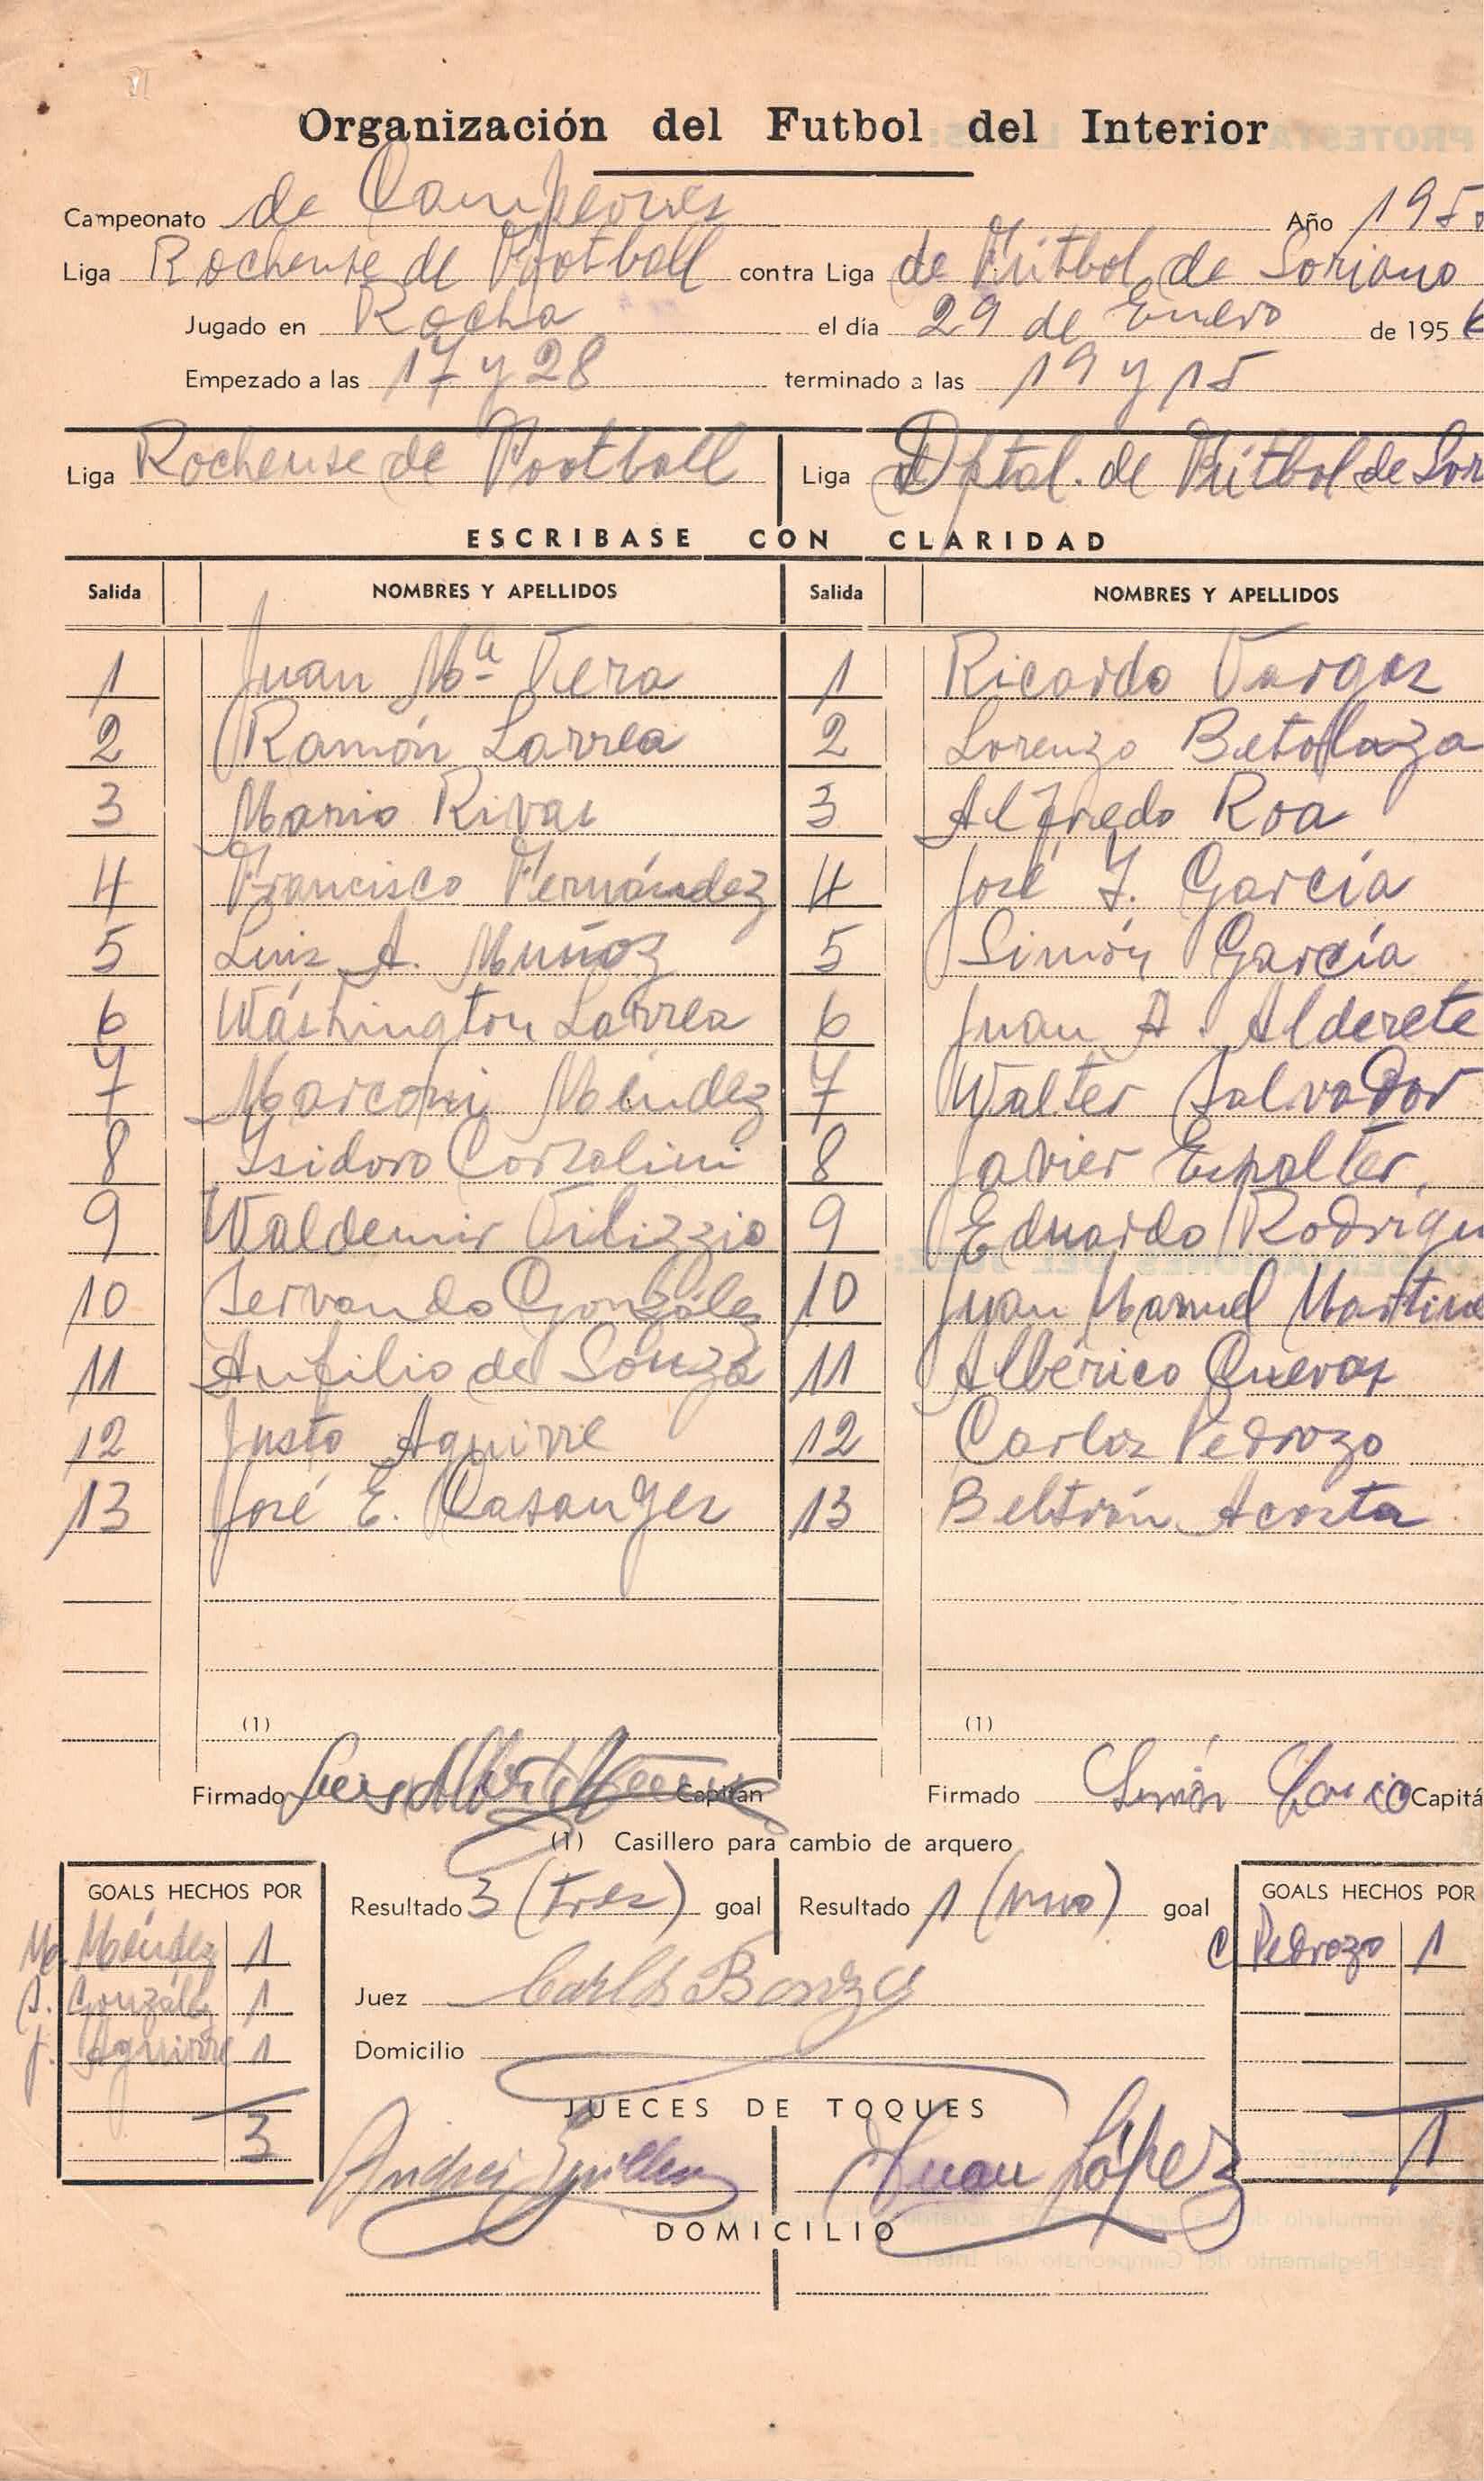 Organización del Futbol del Interior
Campeonato de Campeones Año 195
Liga Rochense de Football contra Liga de Fútbol de Soriano
Jugado en Rocha el día 29 de Enero de 1956
Empezado a las 17 y 28 terminado a las 19 y 15
Liga Rochense de Football Liga Dptal. de Fútbol de Sor
ESCRIBASE CON CLARIDAD
Salida NOMBRES Y APELLIDOS Salida NOMBRES Y APELLIDOS
1 Juan Mª Vera 1 Ricardo Vargas
2 Ramón Larrea 2 Lorenzo Betolaza
3 Mario Rivas 3 Alfredo Roa
4 Francisco Fernández 4 José F. García
5 Luis A. Muñoz 5 Simón García
6 Wáshington Larrea 6 Juan A. Alderete
7 Marconi Méndez 7 Walter Salvador
8 Isidoro Corzolini 8 Javier Espalter
9 Waldemir Vilizzio 9 Eduardo Rodrígu
10 Servando González 10 Juan Manuel Martíne
11 Anfilio de Souza 11 Albérico Cuevas
12 Justo Aguirre 12 Carlos Pedrozo
13 José E. Casanyes 13 Beltrán Acosta
(1) (1)
Firmado Luis Alberto Capitán Firmado Simón García Capitá
(1) Casillero para cambio de arquero
GOALS HECHOS POR Resultado 3 (tres) goal Resultado 1 (uno) goal GOALS HECHOS POR
Ma. Méndez 1 C Pedrozo 1
S. González 1 Juez Carlos
J. Aguirre 1 Domicilio
JUECES DE TOQUES
3 1
Andrés Guillen Juan López
DOMICILIO